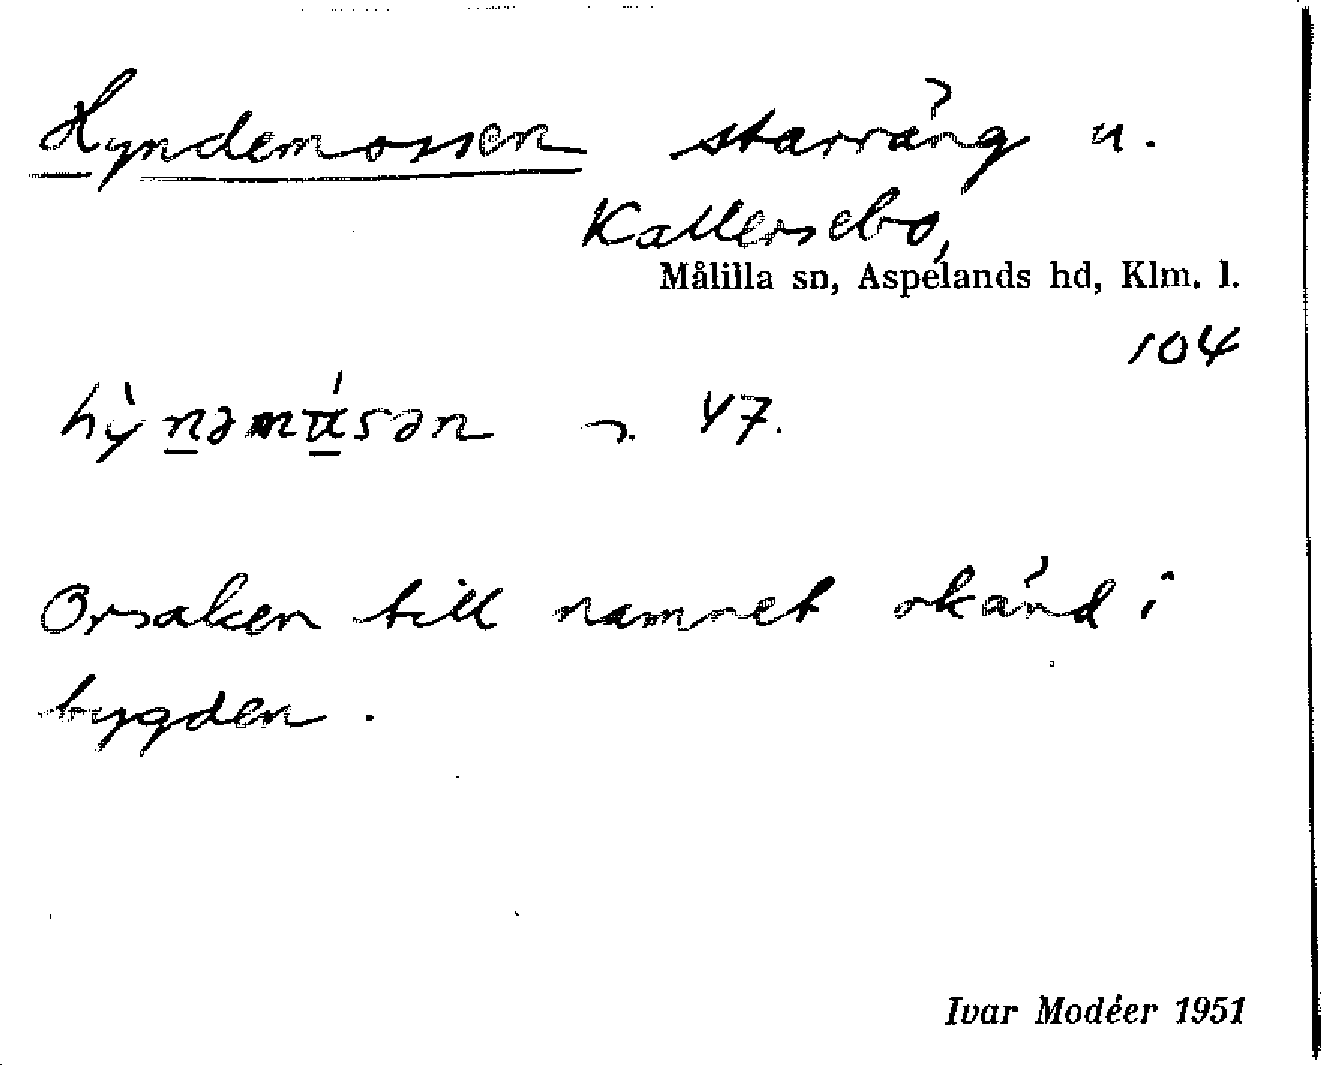 Hyndemossen starräng u.
Kallersebo,
Målilla sn, Aspelands hd, Klm. l.
104
47.
Orsaken till namnet okänd i
bygden.
Ivar Modéer 1951